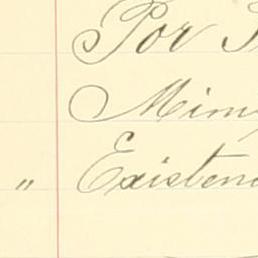 Por
Mim
" Existen